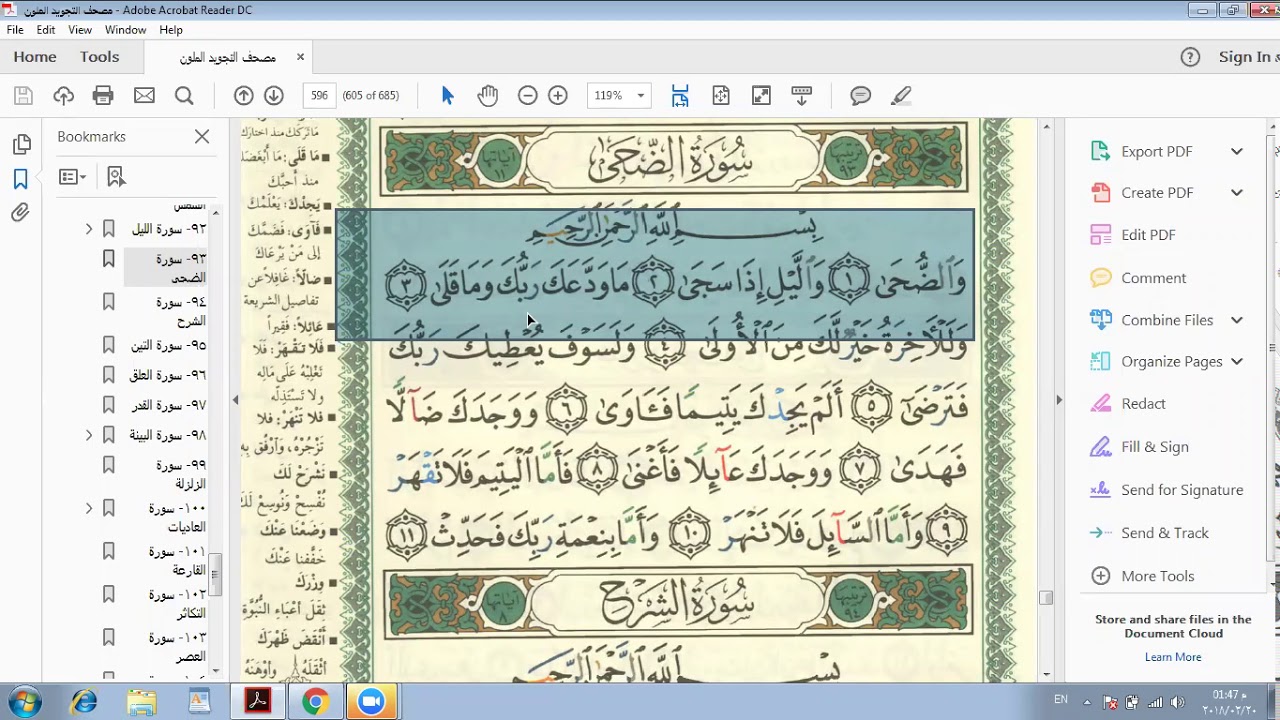 مصحف التجويد الملون - Adobe Acrobat Reader DC
File Edit View Window Help
Home Tools مصحف التجويد الملون × Sign In
596 (605 of 685) 119%
Bookmarks
الشمس
٩٢- سورة الليل
٩٣- سورة
الضحى
٩٤- سورة
الشرح
٩٥- سورة التين
٩٦- سورة العلق
٩٧- سورة القدر
٩٨- سورة البينة
٩٩- سورة
الزلزلة
١٠٠- سورة
العاديات
١٠١- سورة
القارعة
١٠٢- سورة
التكاثر
١٠٣- سورة
العصر
مَا تَرَكَكَ منذ اختارَكَ
مَا قَلَى: مَا أَبْغَضَكَ
منذ أحبَّكَ
يَجِدْكَ: يَعْلَمْكَ
فَآوَى: فَضَمَّكَ
إلى مَنْ يَرْعَاكَ
ضالاً: غَافِلاً عن
تفاصيل الشريعة
عَائِلاً: فَقِيراً
فَلَا تَقْهَرْ: فَلَا
تَغْلِبْهُ عَلَى مَالِهِ
ولا تَسْتَذِلَّه
فلا تَنْهَرْ: فلا
تَزْجُرْهُ، وَارْفُق بِهِ
نَشْرَحْ لَكَ
نُفْسِحْ وَنُوسِعْ لَكَ
وَضَعْنَا عَنْكَ
خَفَّفْنَا عَنْكَ
وِزْرَكَ
ثِقَلَ أَعْبَاءِ النُّبُوَّةِ
أَنْقَضَ ظَهْرَكَ
أَثْقَلَهُ وَأَوْهَنَهُ
ترتيبها ٩٣ سُورَةُ الضُّحَىٰ آياتها ١١
بِسْمِ ٱللَّهِ ٱلرَّحْمَٰنِ ٱلرَّحِيمِ
وَٱلضُّحَىٰ ١ وَٱلَّيْلِ إِذَا سَجَىٰ ٢ مَا وَدَّعَكَ رَبُّكَ وَمَا قَلَىٰ ٣
وَلَلْأَخِرَةُ خَيْرٌ لَّكَ مِنَ ٱلْأُولَىٰ ٤ وَلَسَوْفَ يُعْطِيكَ رَبُّكَ
فَتَرْضَىٰٓ ٥ أَلَمْ يَجِدْكَ يَتِيمًا فَـَٔاوَىٰ ٦ وَوَجَدَكَ ضَآلًّا
فَهَدَىٰ ٧ وَوَجَدَكَ عَآئِلًا فَأَغْنَىٰ ٨ فَأَمَّا ٱلْيَتِيمَ فَلَا تَقْهَرْ
٩ وَأَمَّا ٱلسَّآئِلَ فَلَا تَنْهَرْ ١٠ وَأَمَّا بِنِعْمَةِ رَبِّكَ فَحَدِّثْ ١١
ترتيبها ٩٤ سُورَةُ الشَّرْحِ آياتها
بِسْمِ ٱللَّهِ ٱلرَّحْمَٰنِ ٱلرَّحِيمِ
Export PDF
Create PDF
Edit PDF
Comment
Combine Files
Organize Pages
Redact
Fill & Sign
Send for Signature
Send & Track
More Tools
Store and share files in the
Document Cloud
Learn More
EN
٠١:٤٧ م
٢٠١٨/٠٢/٢٠